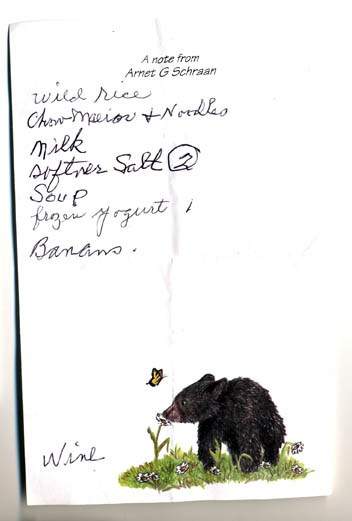 A note from
Arnet G Schraan
Wild rice
Chow Meion & Noodles
Milk
Softner Salt 2
Soup
frozen yogurt 1
Banans.
Wine